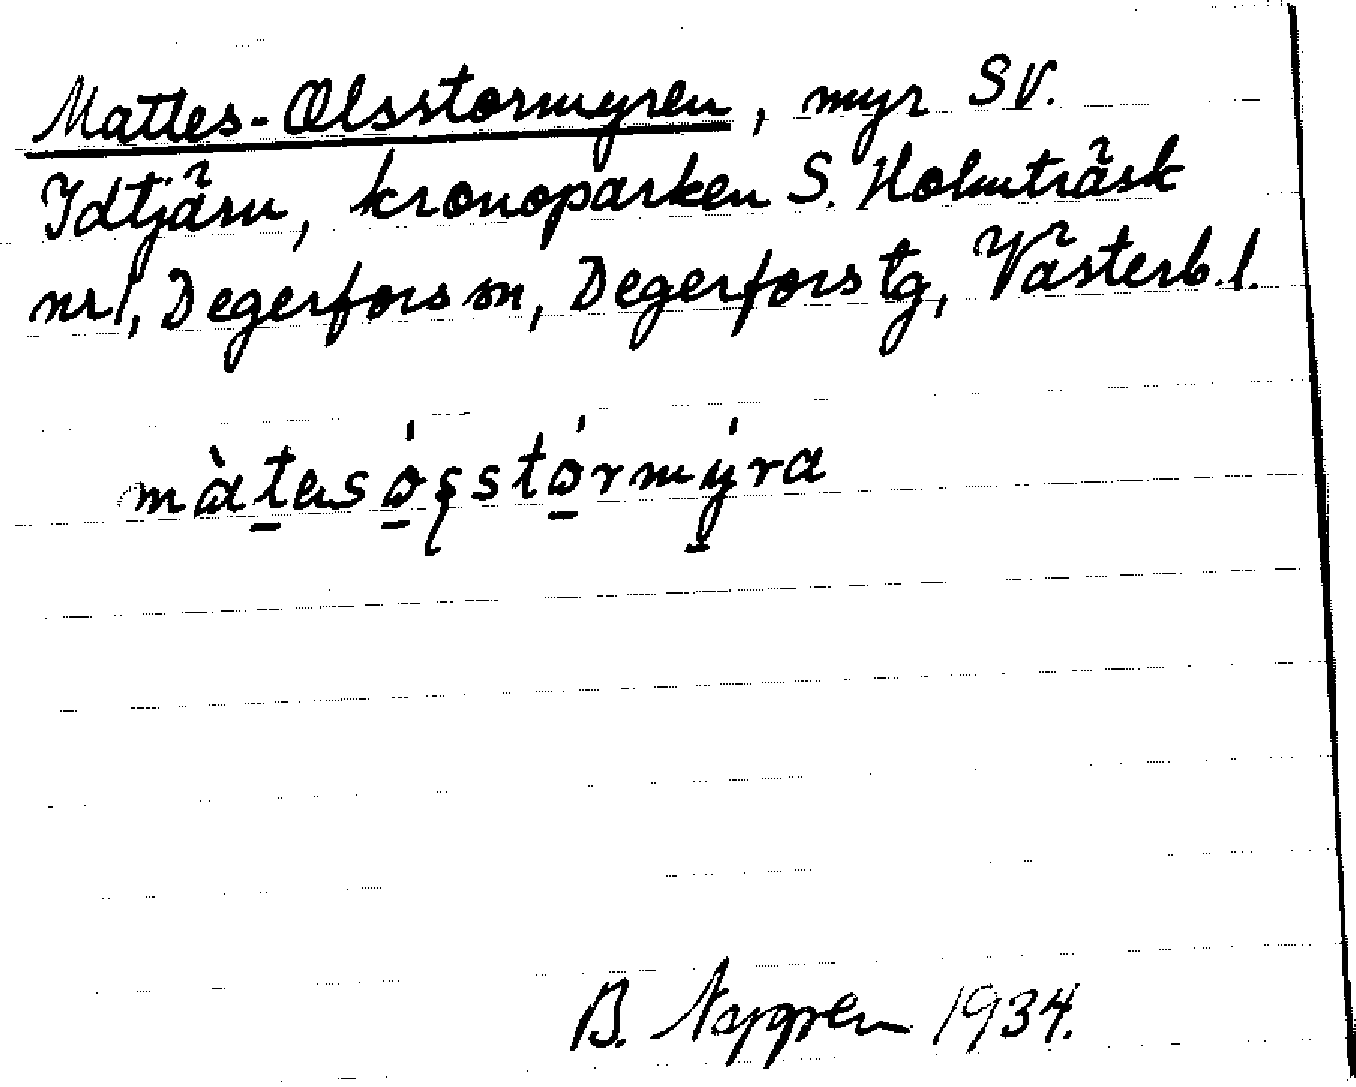 Mattes-Olsstormyren, myr SV.
Idtjärn, kronoparken S. Holmträsk
nr 1, Degerfors sn, Degerfors tg, Västerb. l.
màt̲esó̲şstó̲rmýra
B. 1934.